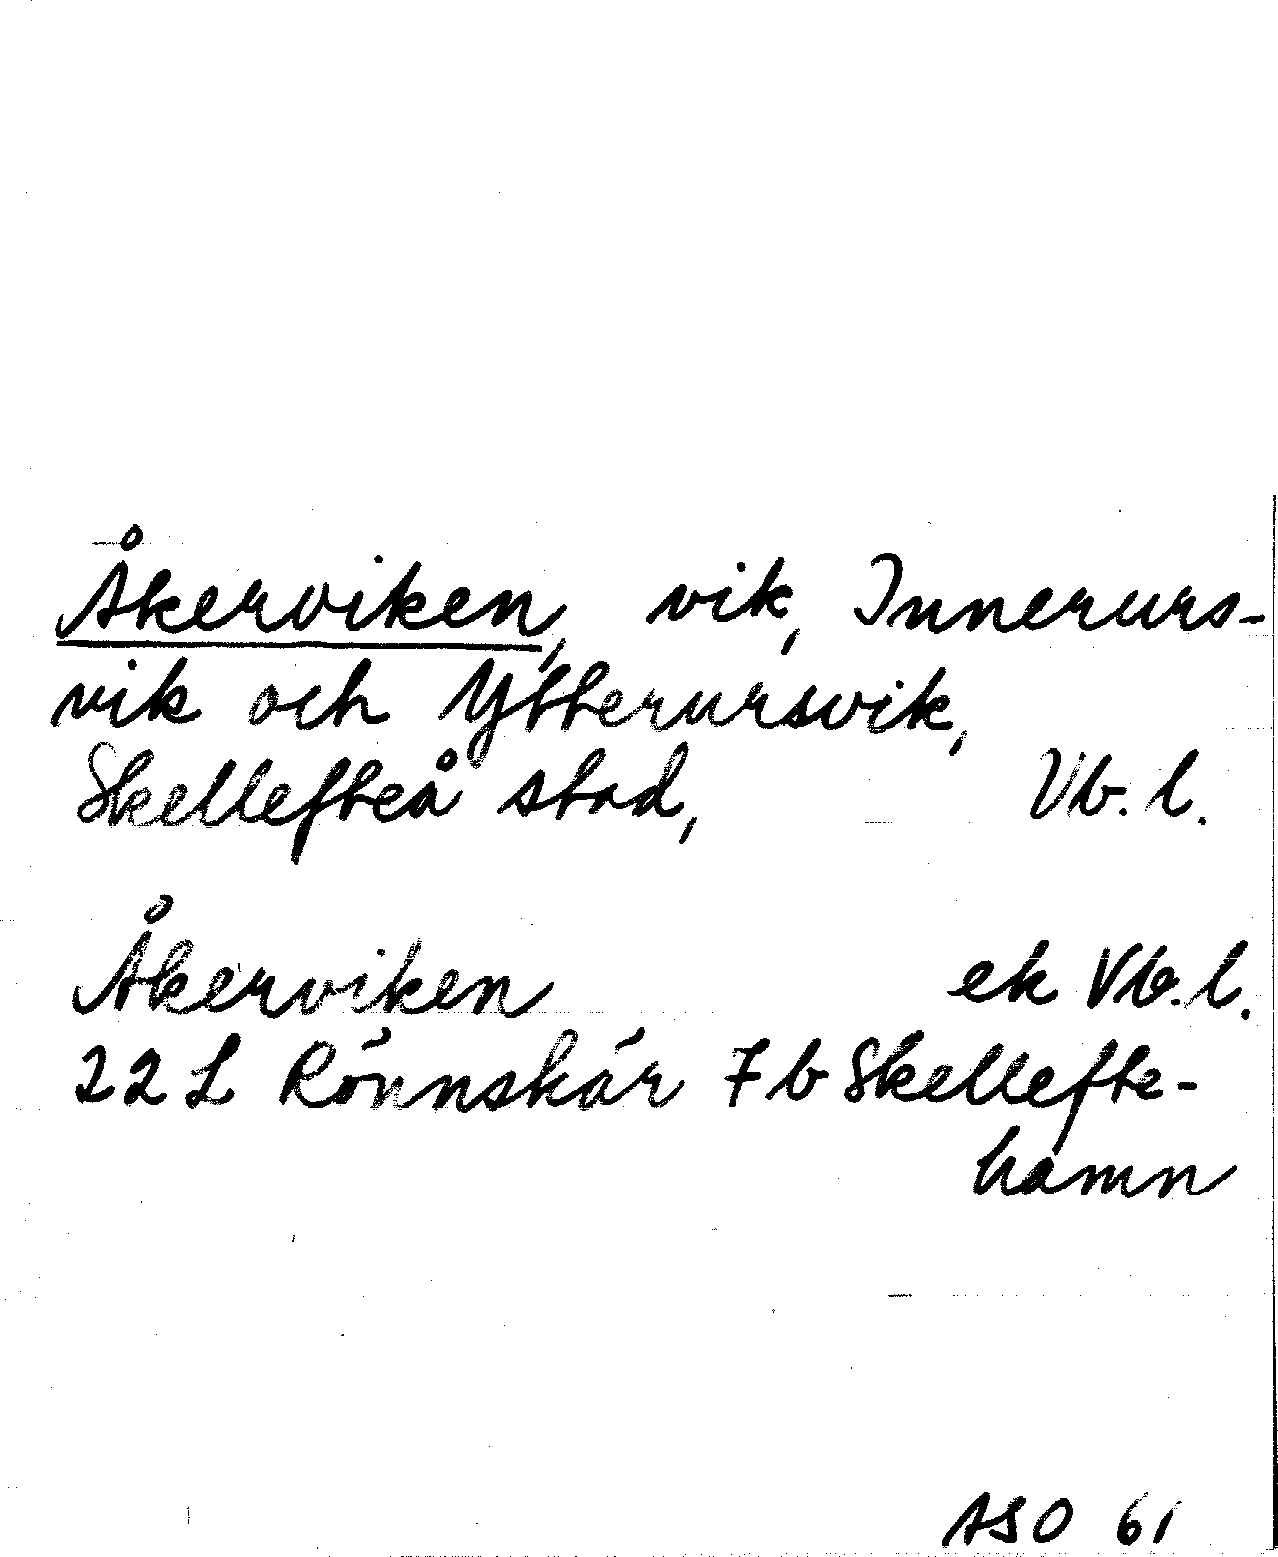 Åkerviken, vik, Innerurs-
vik och Ytterursvik,
Skellefteå stad, Vb. l.
Åkerviken ek Vb. l.
22 L Rönnskär 7 b Skellefte-
hamn
ASO 61